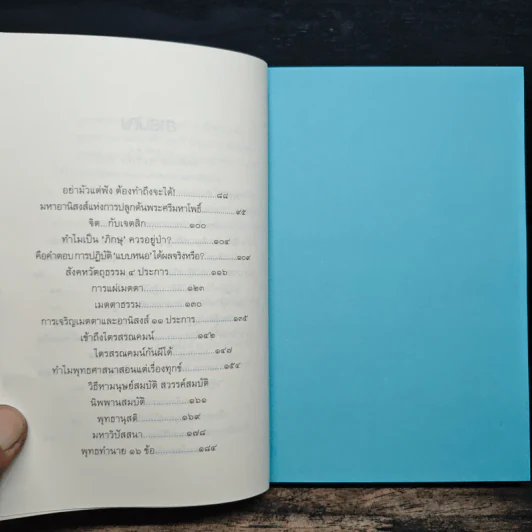 อย่ามัวแต่ฟัง ต้องทำถึงจะได้!...............๘๘
มหาอานิสงส์แห่งการปลูกต้นพระศรีมหาโพธิ์............๙๕
จิต...กับเจตสิก................๑๐๐
ทำไมเป็น 'ภิกษุ' ควรอยู่ป่า?................๑๐๔
คือคำตอบ การปฏิบัติ 'แบบหนอ' ได้ผลจริงหรือ?.............๑๐๙
สังคหวัตถุธรรม ๔ ประการ...............๑๑๖
การแผ่เมตตา................๑๒๓
เมตตาธรรม................๑๓๐
การเจริญเมตตาและอานิสงส์ ๑๑ ประการ..............๑๓๕
เข้าถึงไตรสรณคมน์................๑๔๒
ไตรสรณคมน์กันผีได้................๑๔๗
ทำไมพุทธศาสนาสอนแต่เรื่องทุกข์...............๑๕๔
วิธีหามนุษย์สมบัติ สวรรค์สมบัติ
นิพพานสมบัติ................๑๖๑
พุทธานุสติ................๑๖๙
มหาวิปัสสนา................๑๗๘
พุทธทำนาย ๑๖ ข้อ................๑๘๔